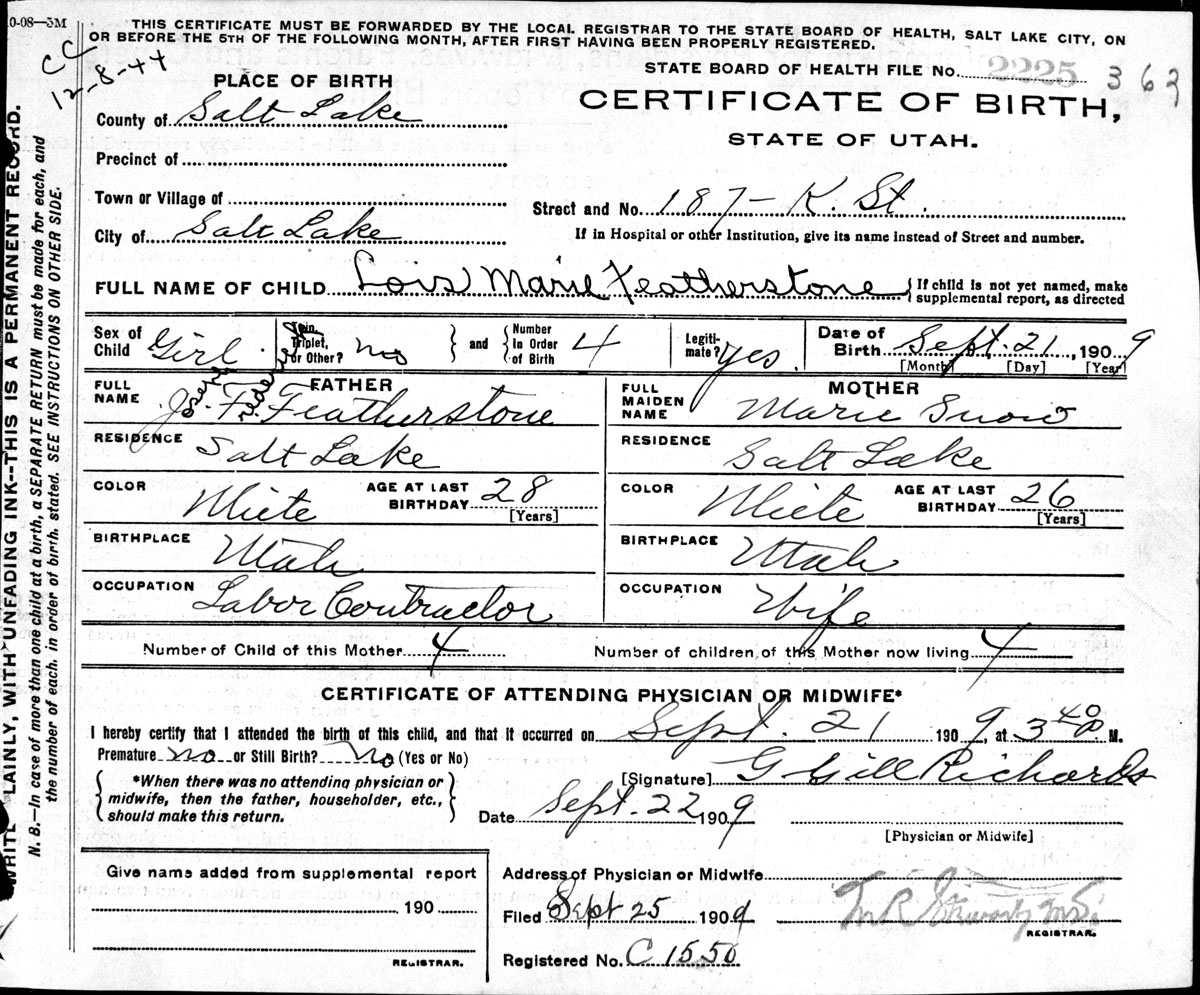 0-08—5M
THIS CERTIFICATE MUST BE FORWARDED BY THE LOCAL REGISTRAR TO THE STATE BOARD OF HEALTH, SALT LAKE CITY, ON
OR BEFORE THE 5TH OF THE FOLLOWING MONTH, AFTER FIRST HAVING BEEN PROPERLY REGISTERED.
CC
12-8-44
STATE BOARD OF HEALTH FILE No. 2225 363
CERTIFICATE OF BIRTH,
STATE OF UTAH.
PLACE OF BIRTH
County of Salt Lake
Precinct of
Town or Village of
City of Salt Lake
Street and No. 187 - K. St.
If in Hospital or other Institution, give its name instead of Street and number.
FULL NAME OF CHILD Lois Marie Featherstone { If child is not yet named, make
supplemental report, as directed
Sex of Child Girl
Twin, Triplet, or Other? no } and { Number In Order of Birth 4
Legiti-mate? yes.
Date of Birth Sept. 21, 1909
[Month] [Day] [Year]
FATHER
FULL NAME J. F. Featherstone
Joseph Frederick
RESIDENCE Salt Lake
COLOR White AGE AT LAST BIRTHDAY 28 [Years]
BIRTHPLACE Utah
OCCUPATION Labor Contractor
MOTHER
FULL MAIDEN NAME Marie Snow
RESIDENCE Salt Lake
COLOR White AGE AT LAST BIRTHDAY 26 [Years]
BIRTHPLACE Utah
OCCUPATION Wife
Number of Child of this Mother 4 Number of children of this Mother now living 4
CERTIFICATE OF ATTENDING PHYSICIAN OR MIDWIFE*
I hereby certify that I attended the birth of this child, and that it occurred on Sept. 21 1909, at 3 40 P M.
Premature no or Still Birth? No (Yes or No)
{ *When there was no attending physician or
midwife, then the father, householder, etc.,
should make this return. }
[Signature] G Gill Richards
Date Sept. 22 1909
[Physician or Midwife]
Give name added from supplemental report
190
REGISTRAR.
Address of Physician or Midwife
Filed Sept 25 1909
REGISTRAR.
Registered No. C 1550
WRITE PLAINLY, WITH UNFADING INK--THIS IS A PERMANENT RECORD.
N. B.—In case of more than one child at a birth, a SEPARATE RETURN must be made for each, and
the number of each, in order of birth, stated. SEE INSTRUCTIONS ON OTHER SIDE.